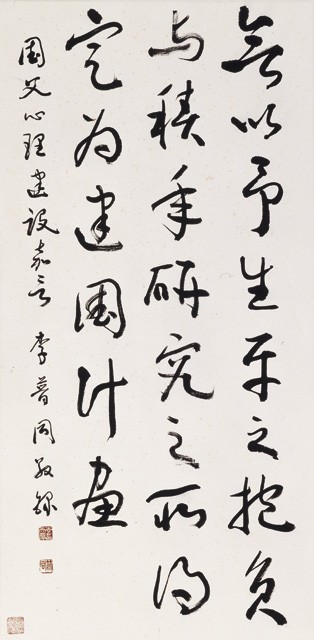 以予生平之抱負
与積年研究之所得
定為建國計畫
國父心理建設嘉言 李普同敬錄